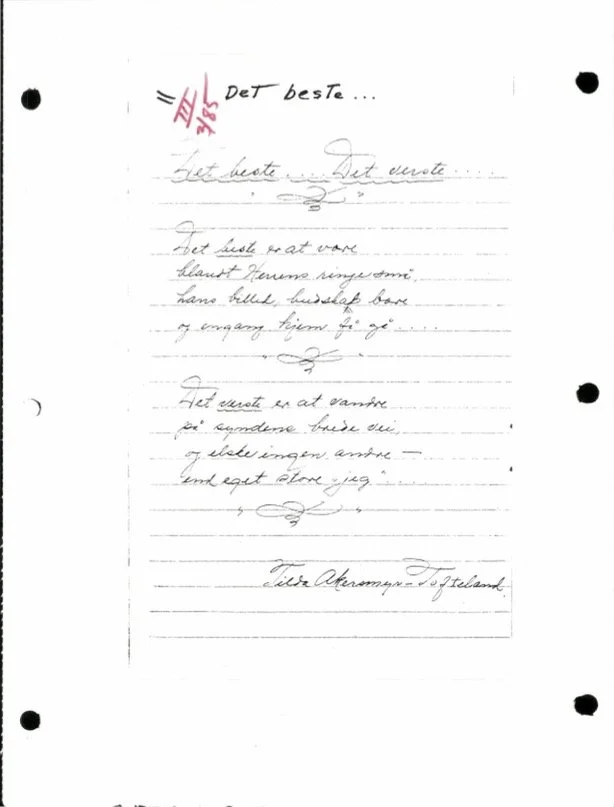 Det beste ...
III
3/85
Det beste .... Det verste ....
Det beste er at være
blandt Herrens ringe små,
hans billed, budskap bære
og engang hjem få gå ....
Det verste er at vandre
på syndens brede vei,
og elske ingen andre —
end eget store "jeg" ....
Tilda Akersmyr-Tofteland.